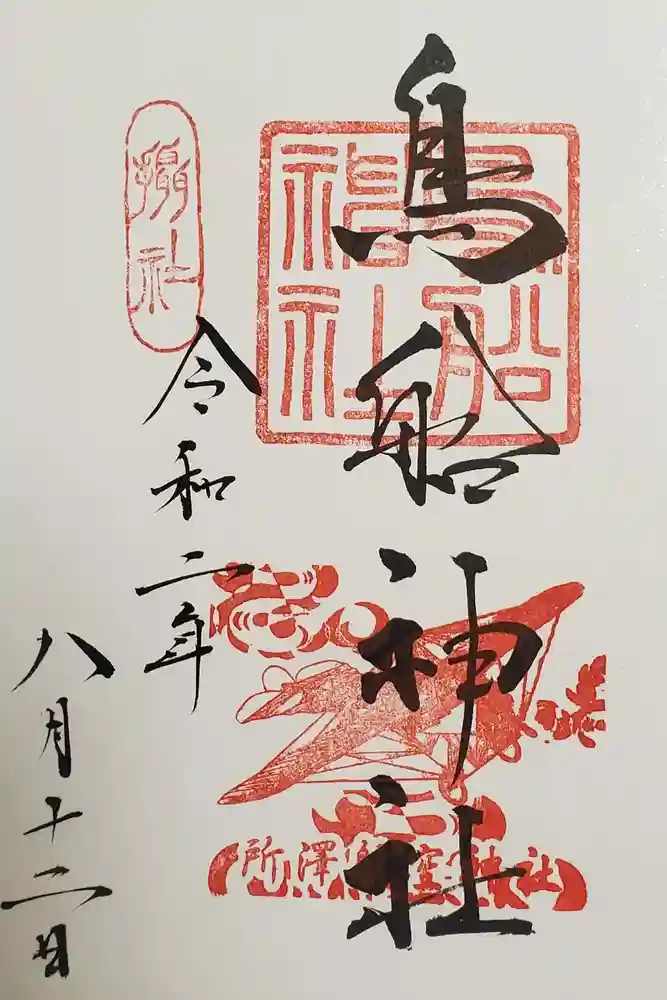 鳥船神社
鳥船
神社
令和二年
八月十二日
摂社
所澤航空神社